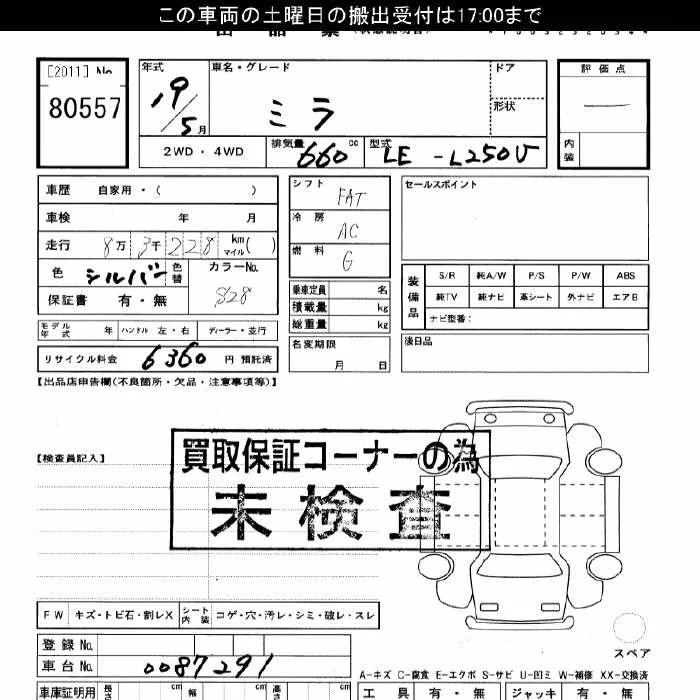 この車両の土曜日の搬出受付は17:00まで
[2011] No
80557
年式
19/5月
車名・グレード
ミラ
ドア
形状
評価点
内装
2WD・4WD
排気量 660 cc
型式 LE-L250V
車歴 自家用・( )
車検 年 月
走行 8万 3千 228 km マイル( )
色 シルバー 色替
カラーNo.
S28
保証書 有・無
シフト FAT
冷房 AC
燃料 G
乗車定員 名
積載量 kg
総重量 kg
名変期限
月 日
セールスポイント
装備品
S/R 純A/W P/S P/W ABS
純TV 純ナビ 革シート 外ナビ エアB
ナビ型番:
後日品
モデル年式 年 ハンドル 左・右 ディーラー・並行
リサイクル料金 6360 円 預託済
【出品店申告欄(不良箇所・欠品・注意事項等)】
【検査員記入】
買取保証コーナーの為
未検査
FW キズ・トビ石・割レX シート内装 コゲ・穴・汚レ・シミ・破レ・スレ
登録No.
車台No. 0087291
スペア
A-キズ C-腐食 E-エクボ S-サビ U-凹ミ W-補修 XX-交換済
車庫証明用 長さ cm 幅 cm 高さ cm
工具 有・無 ジャッキ 有・無